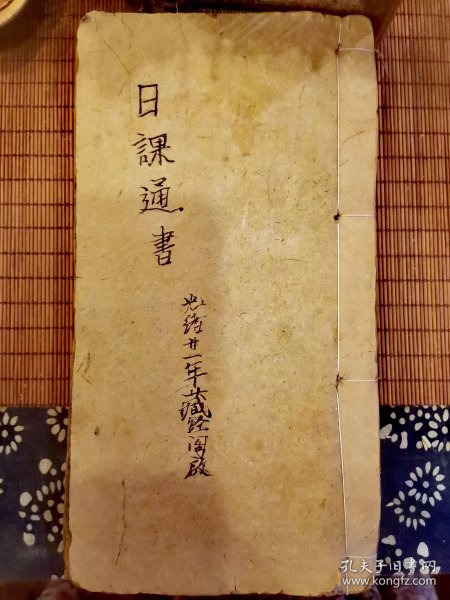 日課通書
光緒廿一年藏经阁啟
孔夫子旧书网
www.kongfz.com